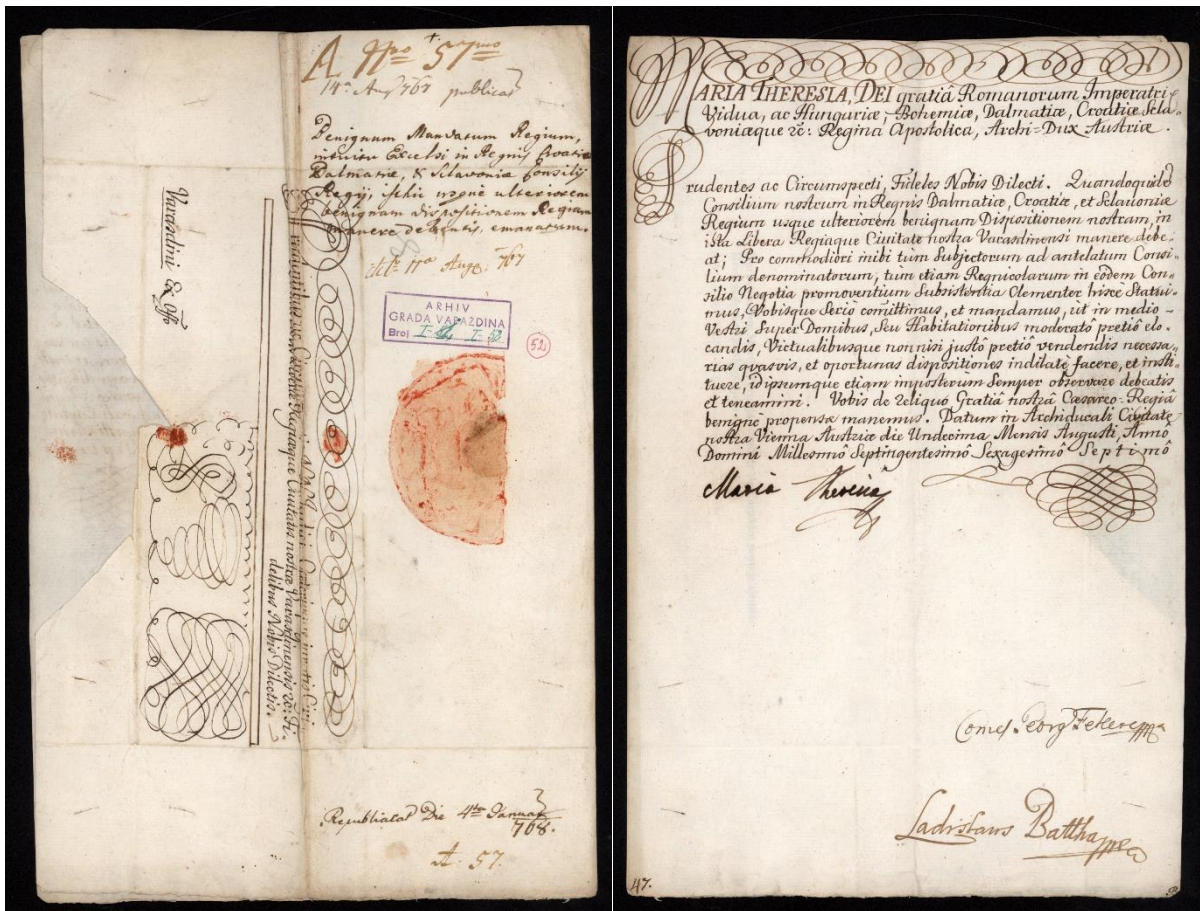 A Nro 57mo
14a Aug 767 publicat
Benignum Mandatum Regium,
intuitu Excelsi in Regnis Croatiæ
Dalmatiæ, & Sclavoniæ Consilij
Regij, isthic usque ulteriorem
benignam dispositionem Regiam
manere debentis, emanatum.
dto 11a Aug: 767
ARHIV
GRADA VARAŽDINA
Broj
52
Varasdini Ex offo
Prudentibus ac Circumspectis
Civitatis nostræ Varasdinensis &c: Fi-
delibus Nobis Dilectis.
Republicat Die 4ta Januar
768.
A. 57.
MARIA THERESIA, DEI gratiâ Romanorum Imperatri-
Vidua, ac Hungariæ, Bohemiæ, Dalmatiæ, Croatiæ Scla-
voniæque &c: Regina Apostolica, Archi-Dux Austriæ.
Prudentes ac Circumspecti, Fideles Nobis Dilecti. Quandoquidē
Consilium nostrum in Regnis Dalmatiæ, Croatiæ, et Sclavoniæ
Regium usque ulteriorem benignam Dispositionem nostram, in
ista Libera Regiaque Civitate nostra Varasdinensi manere debe-
at; Pro commodiori inibi tum Subjectorum ad antelatum Consi-
lium denominatorum, tum etiam Regnicolarum in eôdem Con-
silio Negotia promoventium Subsistentia Clementer hisce Statui-
mus, Vobisque Seriò comittimus, et mandamus, ut in medio
Vestri Super Domibus, Seu Habitationibus moderatô pretiô elo-
candis, Victualibusque non nisi justô pretiô vendendis necessa-
rias quasvis, et oportunas dispositiones indilatè facere, et insti-
tuere, idipsumque etiam imposterum Semper observare debeatis
et teneamini. Vobis de reliquo Gratiâ nostrâ Cæsareo-Regiâ
benignè propensæ manemus. Datum in Archiducali Civitate
nostra Vienna Austriæ die Undecima Mensis Augusti, Annô
Domini Millesimô Septingentesimô Sexagesimô Septimô
Maria Theresia
Comes Georg Fekete
Ladislaus Battha
47.